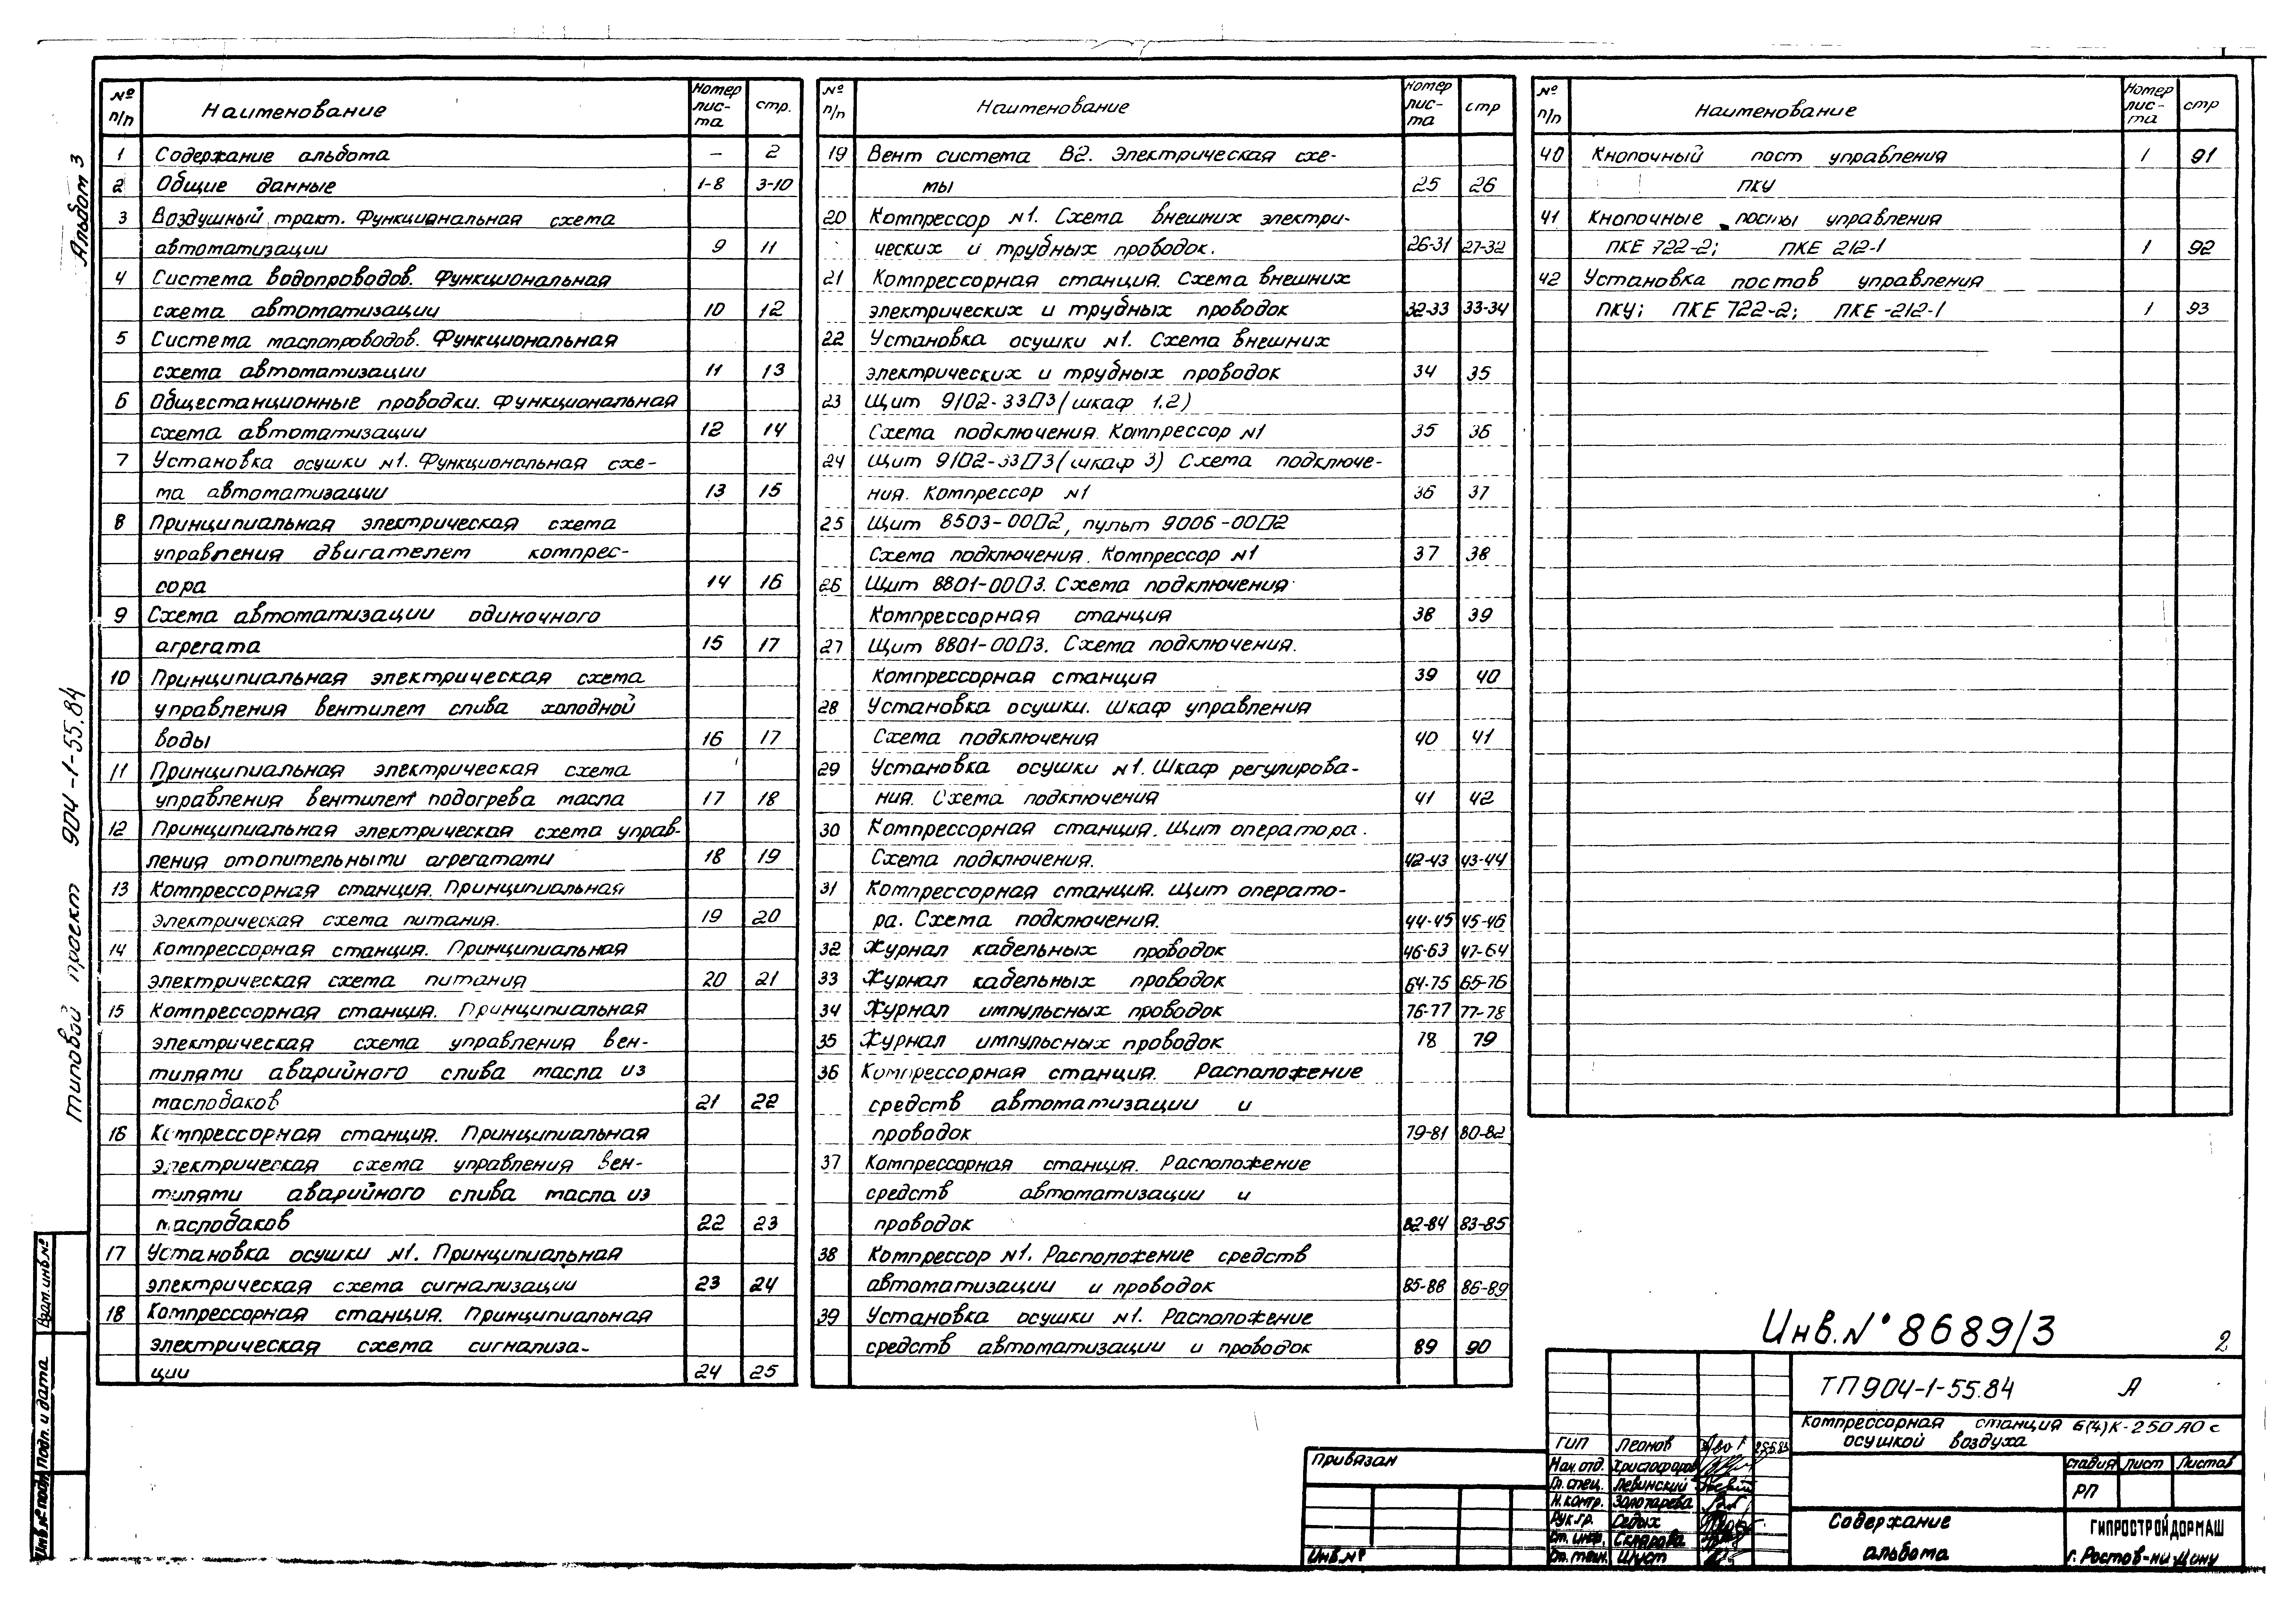 Альбом 3
Типовой проект 904-1-55.84
№ п/п Наименование Номер листа стр.
1 Содержание альбома — 2
2 Общие данные 1-8 3-10
3 Воздушный тракт. Функциональная схема
автоматизации 9 11
4 Система водопроводов. Функциональная
схема автоматизации 10 12
5 Система маслопроводов. Функциональная
схема автоматизации 11 13
6 Общестанционные проводки. Функциональная
схема автоматизации 12 14
7 Установка осушки №1. Функциональная схе-
ма автоматизации 13 15
8 Принципиальная электрическая схема
управления двигателем компрес-
сора 14 16
9 Схема автоматизации одиночного
агрегата 15 17
10 Принципиальная электрическая схема
управления вентилем слива холодной
воды 16 17
11 Принципиальная электрическая схема
управления вентилем подогрева масла 17 18
12 Принципиальная электрическая схема управ-
ления отопительными агрегатами 18 19
13 Компрессорная станция. Принципиальная
электрическая схема питания. 19 20
14 Компрессорная станция. Принципиальная
электрическая схема питания 20 21
15 Компрессорная станция. Принципиальная
электрическая схема управления вен-
тилями аварийного слива масла из
маслобаков 21 22
16 Компрессорная станция. Принципиальная
электрическая схема управления вен-
тилями аварийного слива масла из
маслобаков 22 23
17 Установка осушки №1. Принципиальная
электрическая схема сигнализации 23 24
18 Компрессорная станция. Принципиальная
электрическая схема сигнализа-
ции 24 25
№ п/п Наименование Номер лис-та стр
19 Вент система В2. Электрическая схе-
мы 25 26
20 Компрессор №1. Схема внешних электри-
ческих и трубных проводок. 26-31 27-32
21 Компрессорная станция. Схема внешних
электрических и трубных проводок 32-33 33-34
22 Установка осушки №1. Схема внешних
электрических и трубных проводок 34 35
23 Щит 9102-33П3 (шкаф 1.2)
Схема подключения. Компрессор №1 35 36
24 Щит 9102-33П3 (шкаф 3) Схема подключе-
ния. Компрессор №1 36 37
25 Щит 8503-00П2, пульт 9006-00П2
Схема подключения. Компрессор №1 37 38
26 Щит 8801-00П3. Схема подключения
Компрессорная станция 38 39
27 Щит 8801-00П3. Схема подключения.
Компрессорная станция 39 40
28 Установка осушки. Шкаф управления
Схема подключения 40 41
29 Установка осушки №1. Шкаф регулирова-
ния. Схема подключения 41 42
30 Компрессорная станция. Щит оператора.
Схема подключения. 42-43 43-44
31 Компрессорная станция. Щит операто-
ра. Схема подключения. 44-45 45-46
32 Журнал кабельных проводок 46-63 47-64
33 Журнал кабельных проводок 64-75 65-76
34 Журнал импульсных проводок 76-77 77-78
35 Журнал импульсных проводок 78 79
36 Компрессорная станция. Расположение
средств автоматизации и
проводок 79-81 80-82
37 Компрессорная станция. Расположение
средств автоматизации и
проводок 82-84 83-85
38 Компрессор №1. Расположение средств
автоматизации и проводок 85-88 86-89
39 Установка осушки №1. Расположение
средств автоматизации и проводок 89 90
№ п/п Наименование Номер лис-та стр
40 Кнопочный пост управления 1 91
ПКУ
41 Кнопочные посты управления
ПКЕ 722-2; ПКЕ 212-1 1 92
42 Установка постов управления
ПКУ; ПКЕ 722-2; ПКЕ-212-1 1 93
Инв.№ 8689/3 2
ТП904-1-55.84 А
Компрессорная станция 6(4)К-250АО с
осушкой воздуха
Стадия Лист Листов
РП
Содержание
альбома
ГИПРОСТРОЙДОРМАШ
г. Ростов-на-Дону
ГИП Леонов
Нач.отд. Христофоров
Гл.спец. Левинский
Н.контр. Золотарева
Рук.гр. Седых
Ст.инж. Склярова
Ст.техн. Шуст
Привязан
Инв.№
Взам.инв.№
Подп. и дата
Инв.№ подл.